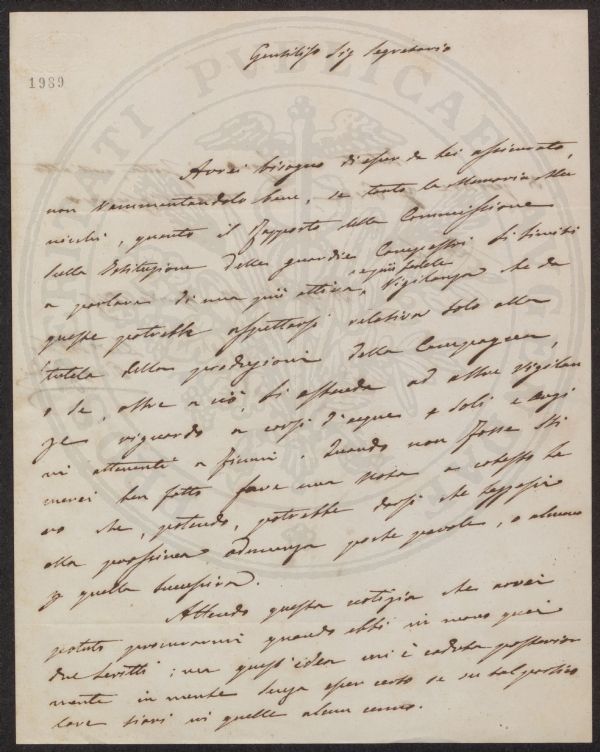 Gentiliss Sig Segretario
1989
Avrei bisogno di esser da Lei assicurato,
non rammentandolo bene, se tanto la Memoria Me
nichi, quanto il Rapporto della Commissione
sulla Istituzione delle guardie Campestri si limiti
a parlare di una più attiva, e più fedele Vigilanza che da
queste potrebbe aspettarsi relativa solo alla
tutela delle produzioni della Campagna,
o se, oltre a ciò, si estenda ad altre vigilan
ze riguardo a corsi d'acque e soli e
ni attenenti a fiumi. Quando non fosse
merei ben fatto fare una nota a cotesto la
ro che, potendo, potrebbe darsi che leggessi
alla prossima adunanza poche parole, o almeno
p quella successiva.
Attendo questa notizia che avrei
potuto procurarmi quando ebbi in mano quei
due scritti; ma quest'idea mi è caduta posterior
mente in mente senza esser certo se su tal partico
lare siavi in quelle alcun cenno.